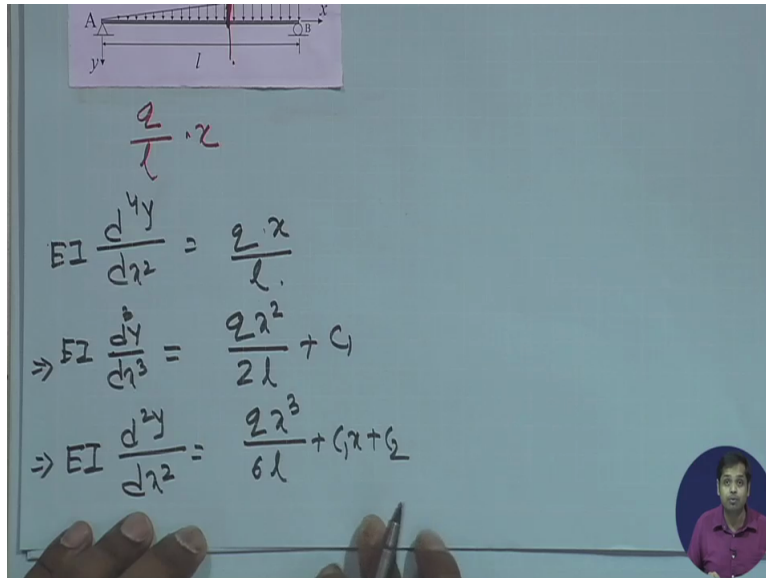 A B x
y l
q/l · x
EI d⁴y/dx² = q·x/l.
⇒ EI d³y/dx³ = qx²/2l + C₁
⇒ EI d²y/dx² = qx³/6l + C₁x + C₂